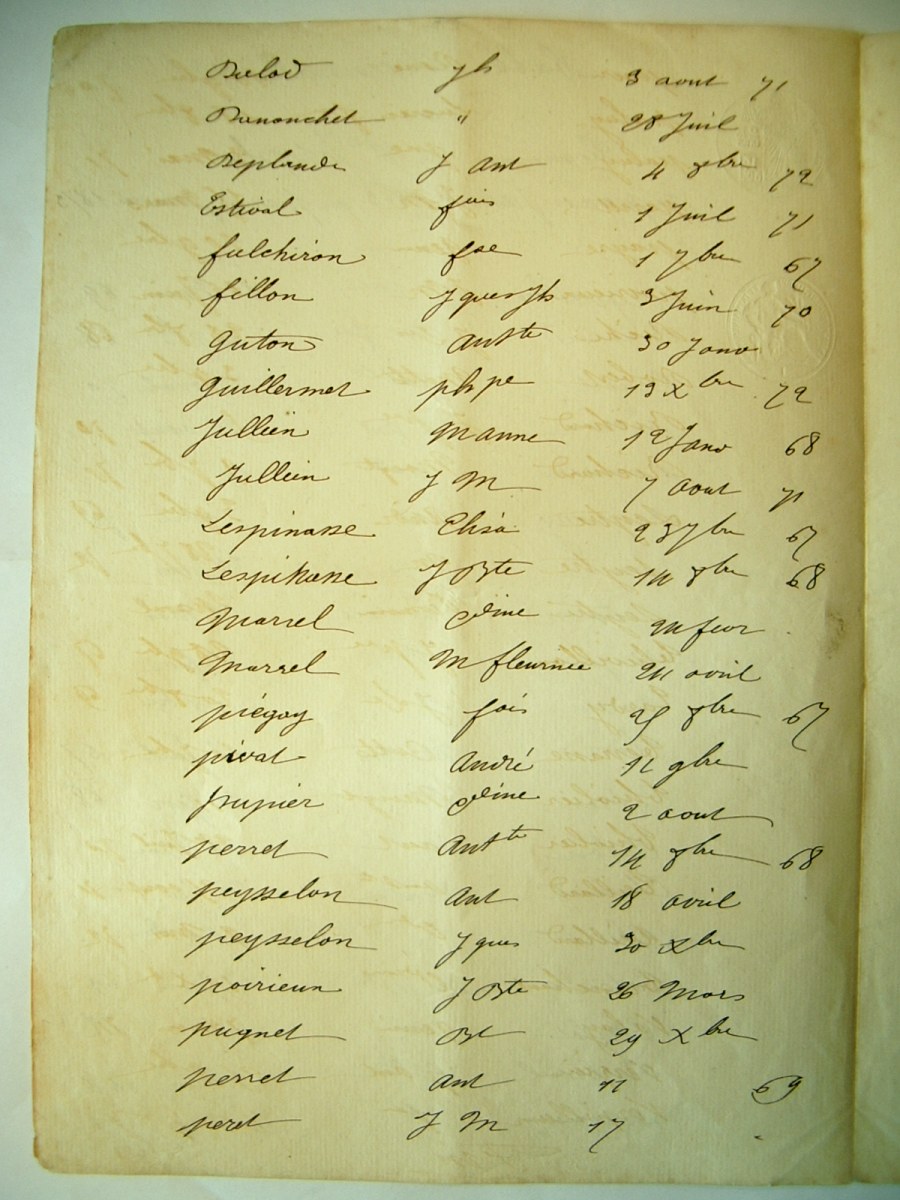 Dulod jh 3 aout 71
Dunonchet " 28 Juil
Deplande J Ant 4 8bre 72
Estival fois 1 Juil 71
fulchiron fse 1 7bre 67
fillon Jques Jh 3 Juin 70
Guton Antte 30 Janv
Guillermet phpe 13 Xbre 72
Jullien Manne 12 Janv 68
Jullien J M 7 aout 71
Lespinasse Elisa 23 7bre 67
Lespinasse J Bte 14 8bre 68
Marrel Cdine fevr
Marrel M fleurinee 24 avril
piégay fois 25 8bre 67
pivat André 12 9bre
prupier Cdine 2 aout
perret Antte 14 8bre 68
peysselon Ant 18 avril
peysselon Jques 30 Xbre
poirieux J Bte 26 Mars
pugnet Bt 29 Xbre
perret Ant 11 69
peret J M 17